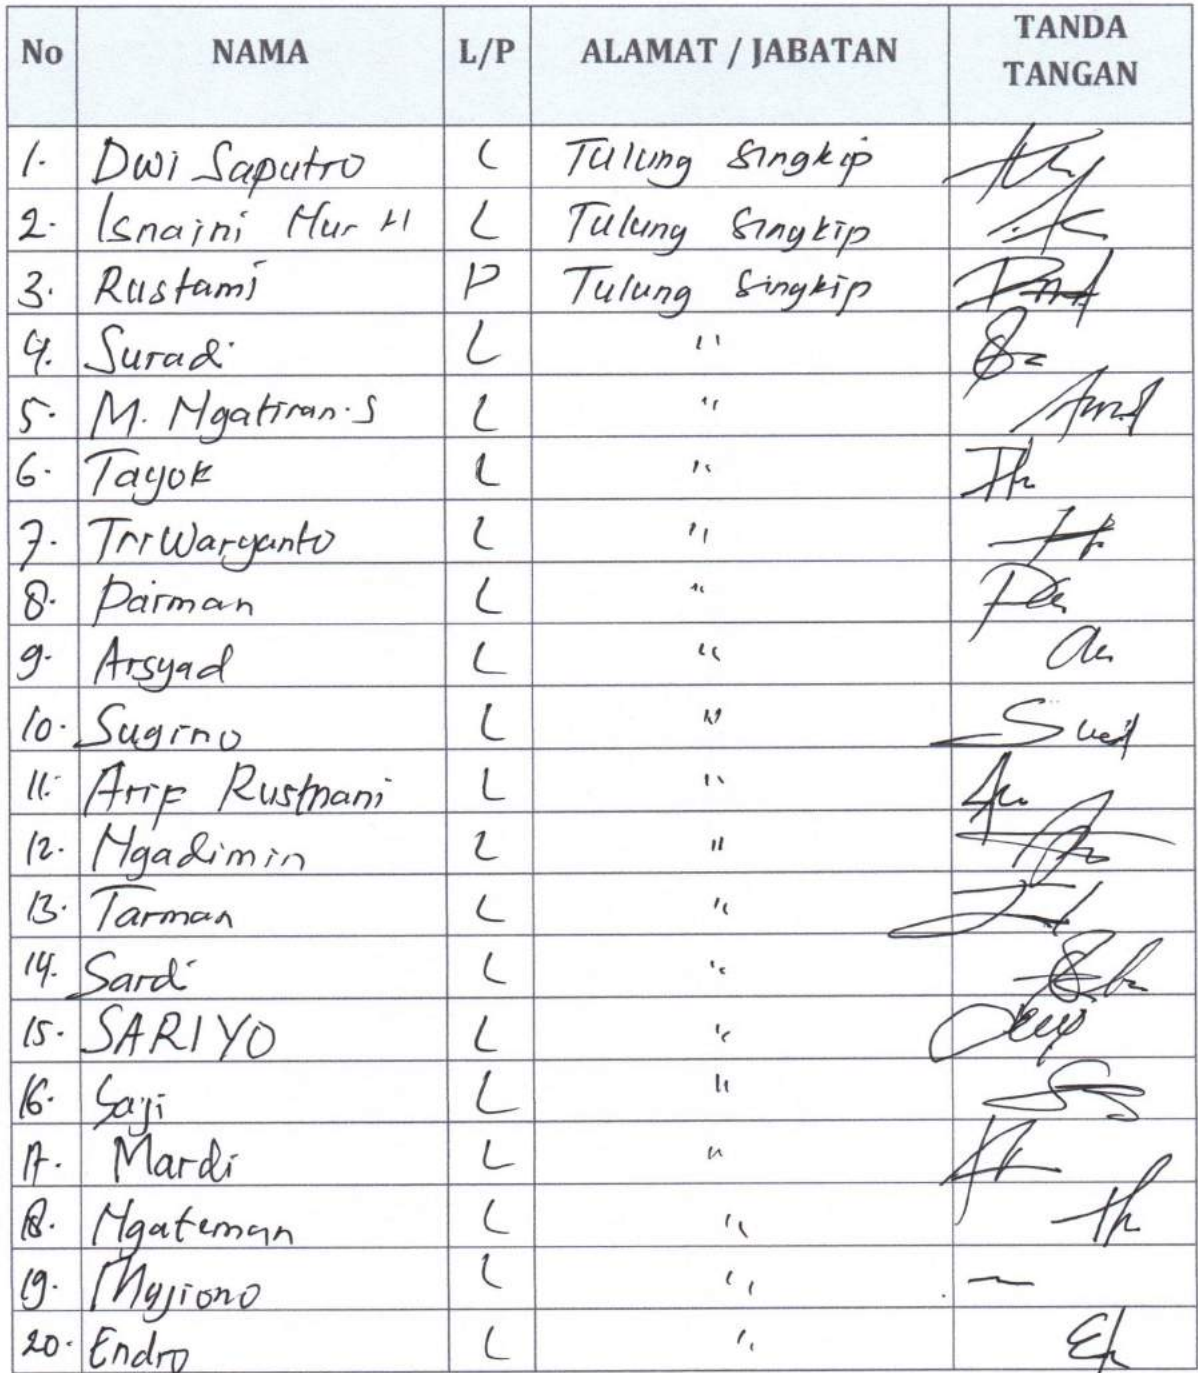 No NAMA L/P ALAMAT / JABATAN TANDA TANGAN
1. Dwi Saputro L Tulung Singkip
2. Isnaini Nur H L Tulung Singkip
3. Rustami P Tulung Singkip
4. Suradi L "
5. M. Ngatiran.S L "
6. Tayok L "
7. Tri Waryanto L "
8. Parman L "
9. Arsyad L "
10. Sugino L "
11. Arif Rustnani L "
12. Ngadimin L "
13. Tarman L "
14. Sardi L "
15. SARIYO L "
16. Saji L "
17. Mardi L "
18. Ngateman L "
19. L "
20. Endro L "